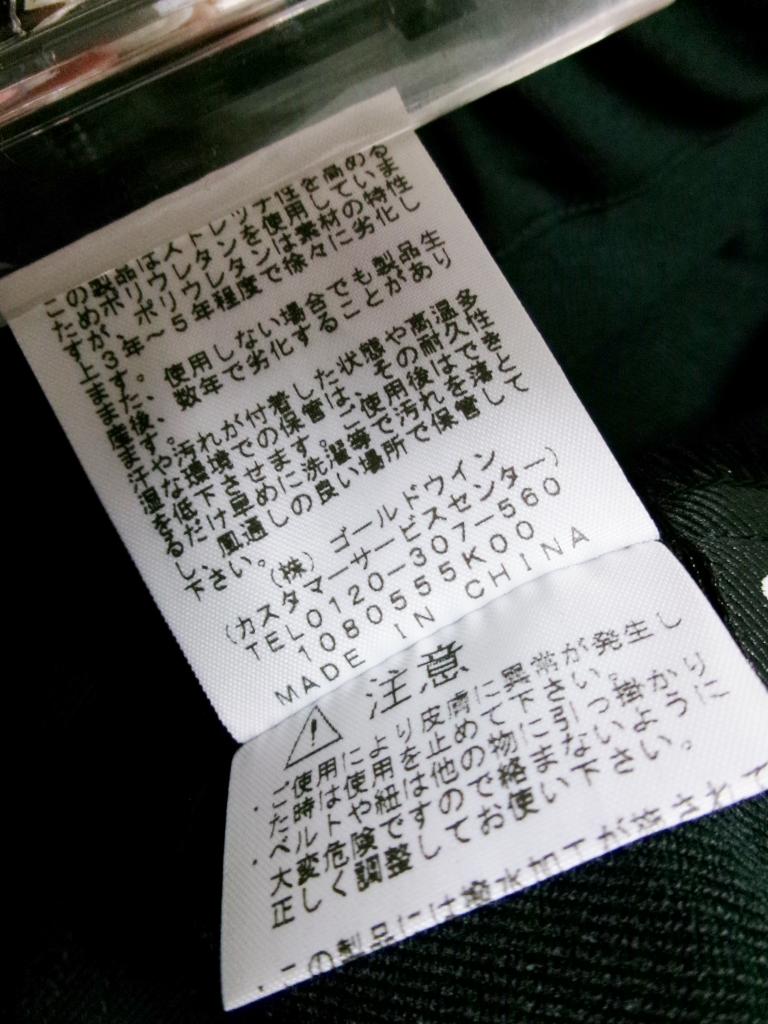 この製品はストレッチ性を高める
ためポリウレタンを使用していま
すが、ポリウレタンは素材の特性
上3年～5年程度で徐々に劣化し
ます。
また、使用しない場合でも製品生
産後、数年で劣化することがあり
ます。
汗や汚れが付着した状態や高温多
湿な環境での保管は、その耐久性
を低下させます。ご使用後はでき
るだけ早めに洗濯等で汚れを落と
し、風通しの良い場所で保管して
下さい。
(株) ゴールドウイン
(カスタマーサービスセンター)
TEL0120-307-560
1080555K00
MADE IN CHINA
注意
・ご使用により皮膚に異常が発生し
た時は使用を止めて下さい。
・ベルトや紐は他の物に引っ掛かり
大変危険ですので絡まないように
正しく調整してお使い下さい。
・この製品には撥水加工が施されて